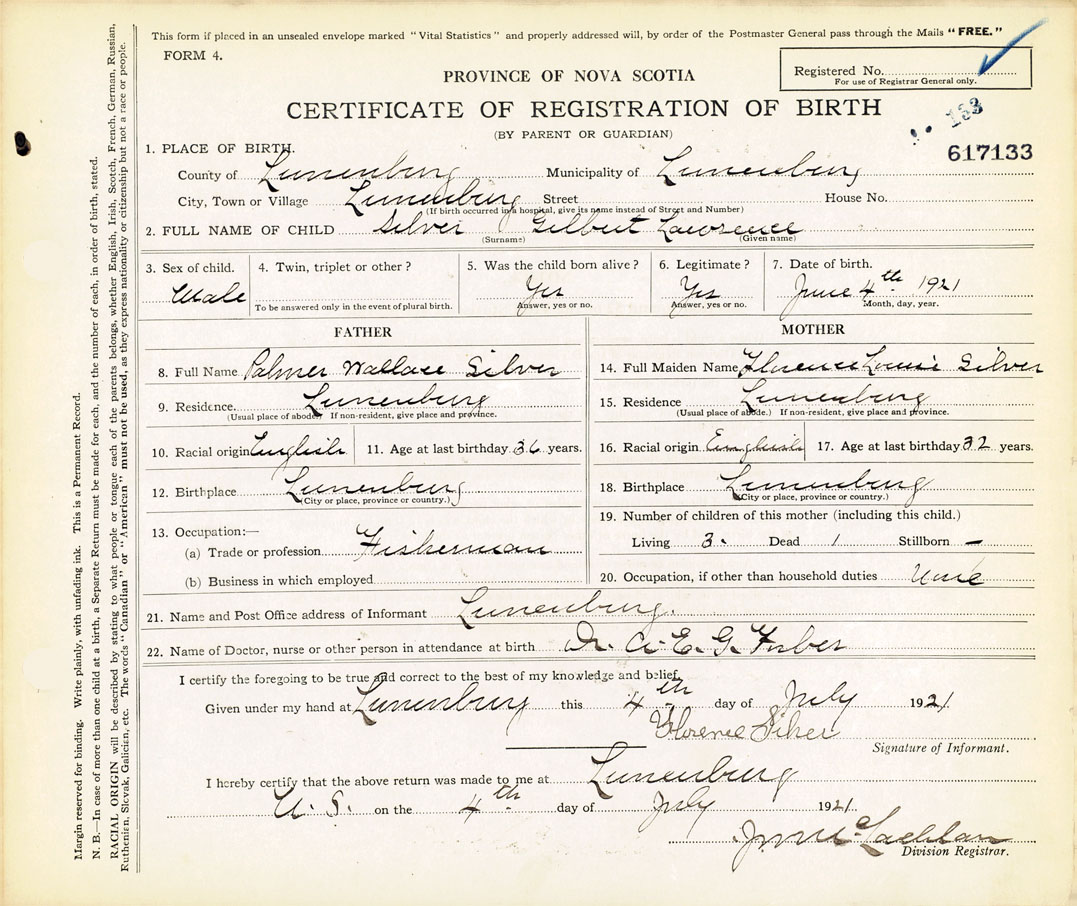 This form if placed in an unsealed envelope marked "Vital Statistics" and properly addressed will, by order of the Postmaster General pass through the Mails "FREE."
FORM 4.
Registered No.
For use of Registrar General only.
PROVINCE OF NOVA SCOTIA
CERTIFICATE OF REGISTRATION OF BIRTH
133
(BY PARENT OR GUARDIAN)
617133
1. PLACE OF BIRTH.
County of Lunenburg Municipality of Lunenburg
City, Town or Village Lunenburg Street House No.
(If birth occurred in a hospital, give its name instead of Street and Number)
2. FULL NAME OF CHILD Silver Gilbert Lawrence
(Surname) (Given name)
3. Sex of child. 4. Twin, triplet or other? 5. Was the child born alive? 6. Legitimate? 7. Date of birth.
Male Yes Yes June 4th 1921
To be answered only in the event of plural birth. Answer, yes or no. Answer, yes or no. Month, day, year.
FATHER
8. Full Name Palmer Wallace Silver
9. Residence. Lunenburg
(Usual place of abode. If non-resident, give place and province.
10. Racial origin English 11. Age at last birthday 36 years.
12. Birthplace Lunenburg
(City or place, province or country.)
13. Occupation:—
(a) Trade or profession Fisherman
(b) Business in which employed
MOTHER
14. Full Maiden Name Florence Silver
15. Residence Lunenburg
(Usual place of abode.) If non-resident, give place and province.
16. Racial origin English 17. Age at last birthday 32 years.
18. Birthplace Lunenburg
(City or place, province or country.)
19. Number of children of this mother (including this child.)
Living 3. Dead 1 Stillborn –
20. Occupation, if other than household duties
21. Name and Post Office address of Informant Lunenburg.
22. Name of Doctor, nurse or other person in attendance at birth Dr. A. E. G. Forbes
I certify the foregoing to be true and correct to the best of my knowledge and belief.
Given under my hand at Lunenburg this 4th day of July 1921.
Florence Silver
Signature of Informant.
I hereby certify that the above return was made to me at Lunenburg
N. S. on the 4th day of July 1921.
McLachlan
Division Registrar.
Margin reserved for binding. Write plainly, with unfading ink. This is a Permanent Record.
N. B.—In case of more than one child at a birth, a Separate Return must be made for each, and the number of each, in order of birth, stated.
RACIAL ORIGIN will be described by stating to what people or tongue each of the parents belongs, whether English, Irish, Scotch, French, German, Russian,
Ruthenian, Slovak, Galician, etc. The words "Canadian" or "American" must not be used, as they express nationality or citizenship but not a race or people.